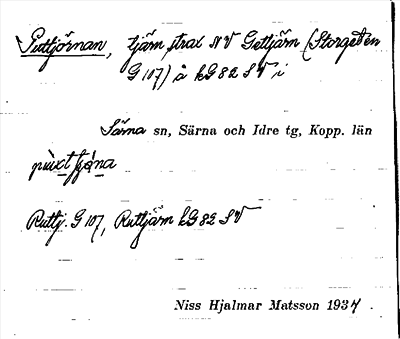 Puttjörnan, tjärn, strax NV Gettjärn (Storgeten
G 107) å kG 82 SV i
Särna sn, Särna och Idre tg, Kopp. län
Ruttj. G 107, Ruttjärn kG 82 SV
Niss Hjalmar Matsson 1937.